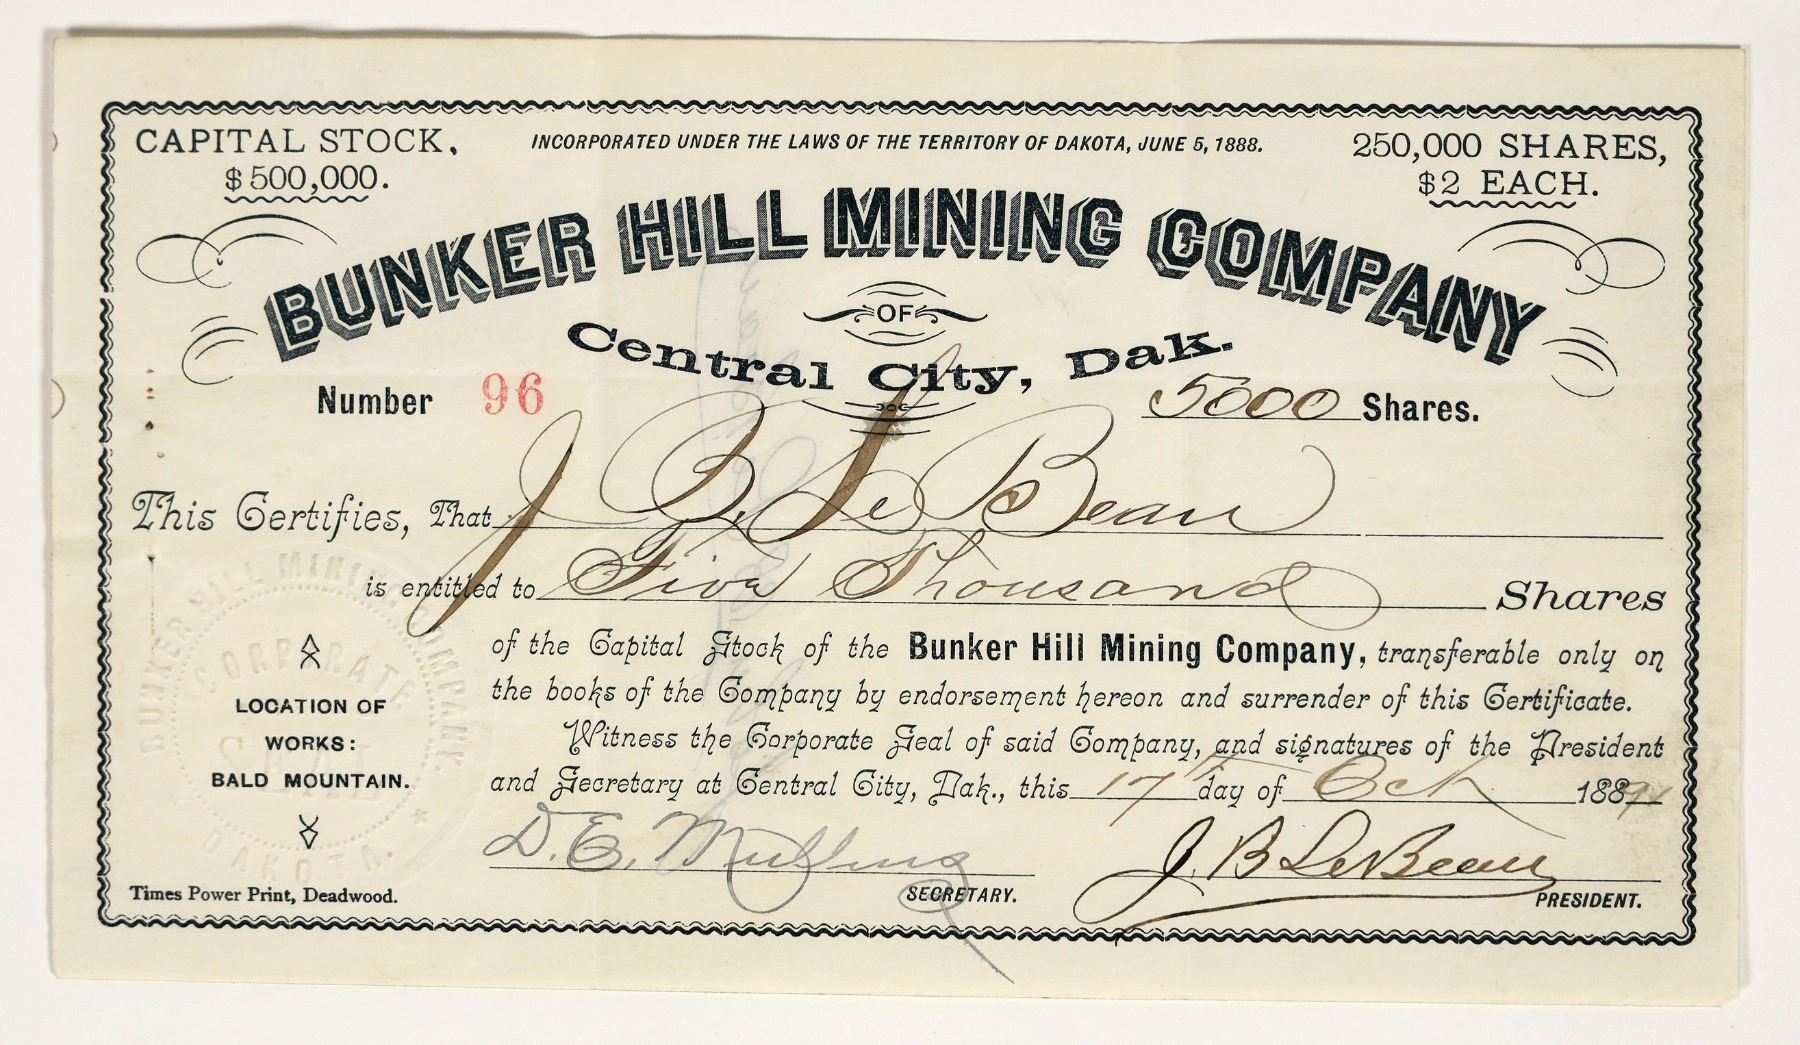 CAPITAL STOCK,
$500,000.
INCORPORATED UNDER THE LAWS OF THE TERRITORY OF DAKOTA, JUNE 5, 1888.
250,000 SHARES,
$2 EACH.
BUNKER HILL MINING COMPANY
OF
Central City, Dak.
Number 96
5000 Shares.
This Certifies, That J. B. Le Beau
is entitled to Five Thousand Shares
of the Capital Stock of the Bunker Hill Mining Company, transferable only on
the books of the Company by endorsement hereon and surrender of this Certificate.
Witness the Corporate Seal of said Company, and signatures of the President
and Secretary at Central City, Dak., this 17th day of Oct 188
BUNKER HILL MINING COMPANY.
CORPORATE
SEAL
DAKOTA.
LOCATION OF
WORKS:
BALD MOUNTAIN.
D. E. Mullins
SECRETARY.
J. B LeBeau
PRESIDENT.
Times Power Print, Deadwood.